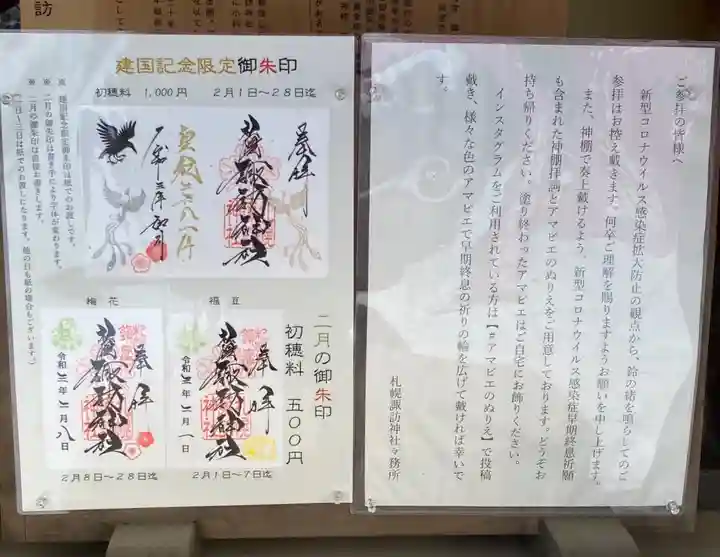 建国記念限定御朱印
初穂料 1,000円 2月1日〜28日迄
奉拝
札幌諏訪神社
皇紀二六八一年
令和三年如月
建国記念限定御朱印は紙でのお渡しです。
二月の御朱印は書き手により字体が変わります。
二月の御朱印は直接お書きします。
二月の御朱印
初穂料 五〇〇円
福豆
奉拝
札幌諏訪神社
令和三年二月一日
2月1日〜7日迄
梅花
奉拝
札幌諏訪神社
令和三年二月八日
2月8日〜28日迄
ご参拝の皆様へ
新型コロナウイルス感染症拡大防止の観点から、鈴の緒を鳴らしてのご
参拝はお控え戴きます。何卒ご理解を賜りますようお願いを申し上げます。
また、神棚で奏上戴けるよう、新型コロナウイルス感染症早期終息祈願
も含まれた神棚拝詞とアマビエのぬりえをご用意しております。どうぞお
持ち帰りください。塗り終わったアマビエはご自宅にお飾りください。
インスタグラムをご利用されている方は【#アマビエのぬりえ】で投稿
戴き、様々な色のアマビエで早期終息の祈りの輪を広げて戴ければ幸いで
す。
札幌諏訪神社々務所